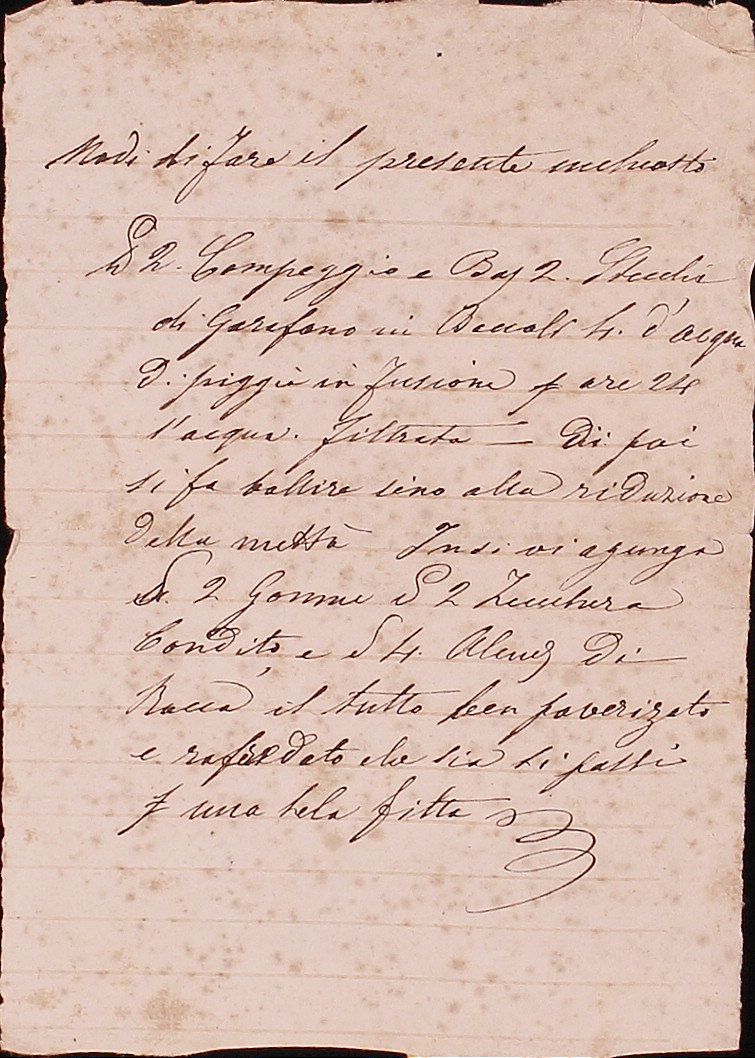 Modi di fare il presente inchiosto
2. Campeggio e Baj 2. Stecchi
di Garofano in Boccali 4. d'acqua
D. piggio in fusione p ore 24
l'acqua. filtrata — Di poi
si fa bollire sino alla riduzione
della mettà Indi vi agunga
2 Gomme 2 Zucchera
Condito, e 4. Alume Di
Rocca il tutto ben poverizato
e rafredato che sia si passi
p una tela fitta